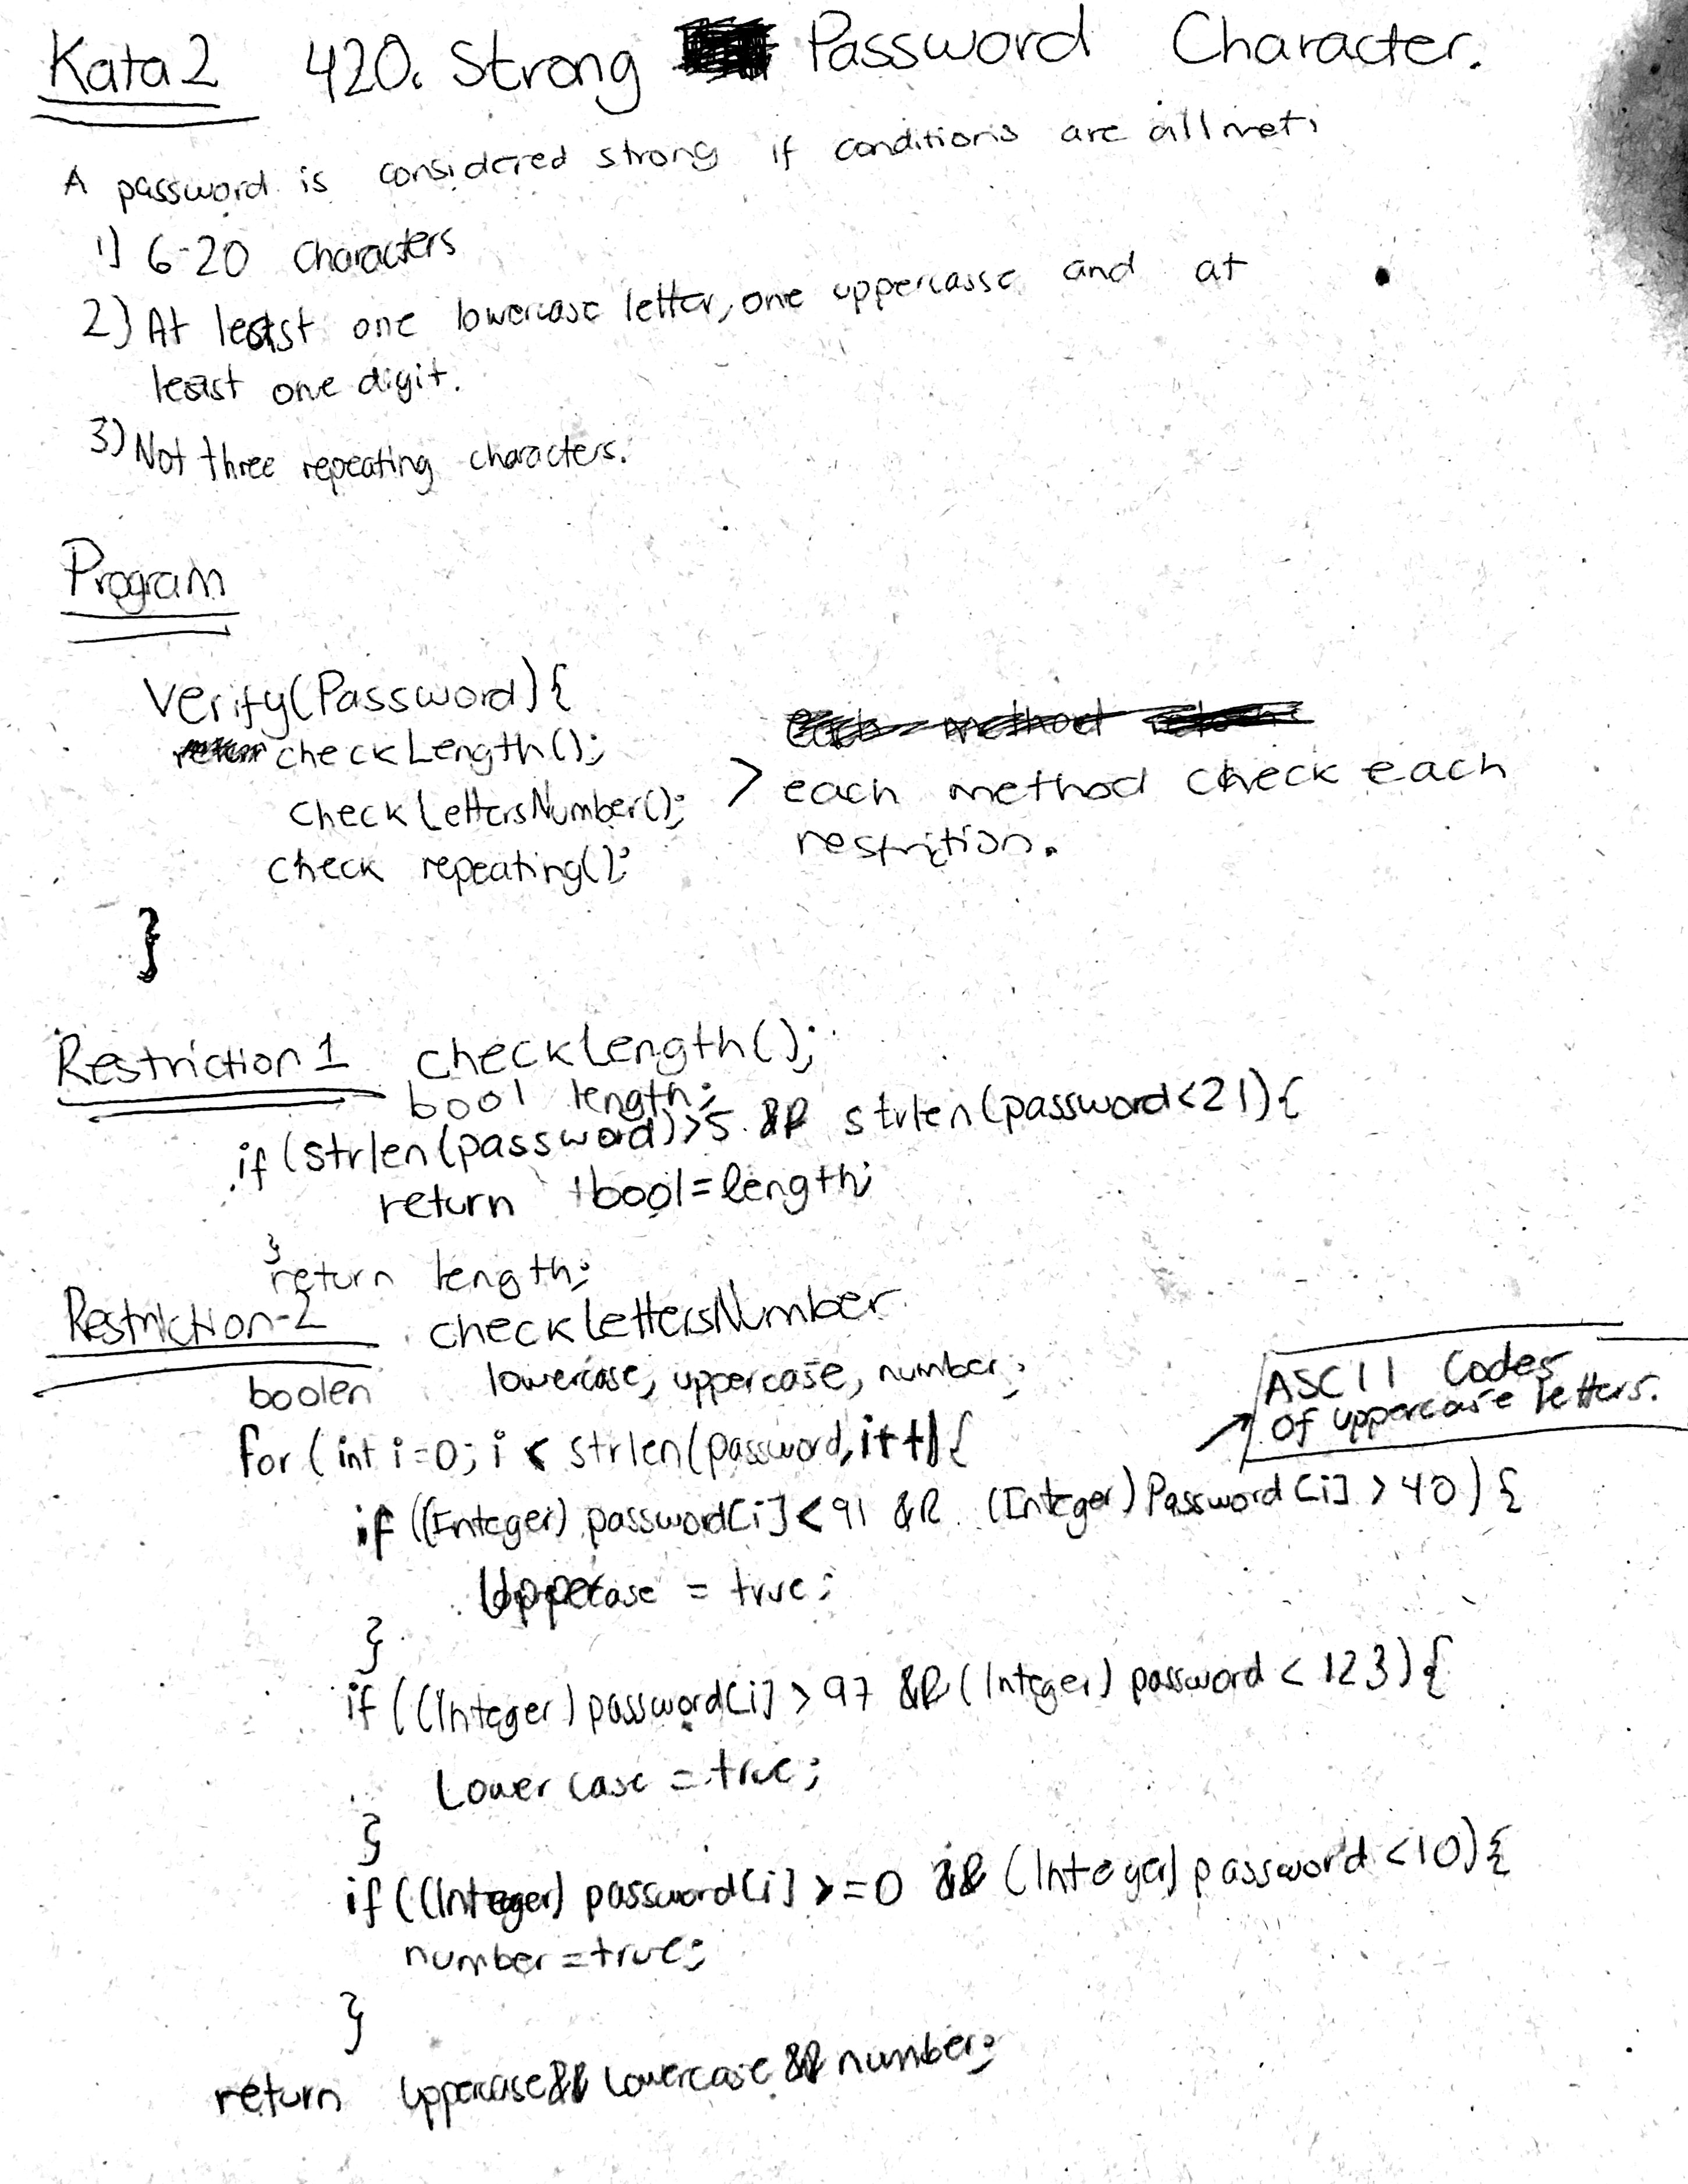 Kata 2 420. Strong Password Character.
A password is considered strong if conditions are all met.
1) 6-20 Characters
2) At least one lowercase letter, one uppercasse and at
least one digit.
3) Not three repeating characters.
Program
Verify(Password){
checkLength();
checkLettersNumber();
check repeating();
> each method check each
restrition.
}
Restriction 1 checkLength();
bool length;
if (strlen(password)>5 && strlen(password<21){
return !bool=length;
}
return length;
Restriction-2 checkLettersNumber
boolen lowercase, uppercase, number;
ASCII Codes
Of uppercase letters.
For (int i=0; i < strlen(password, i++){
if ((Integer) password[i] < 91 && (Integer) Password[i] > 40) {
Uppercase = true;
}
if ((Integer) password[i] > 97 && (Integer) password < 123) {
Lower case = true;
}
if ((Integer) password[i] >=0 && (Integer) password <10) {
number = true;
}
return Uppercase && Lowercase && number;